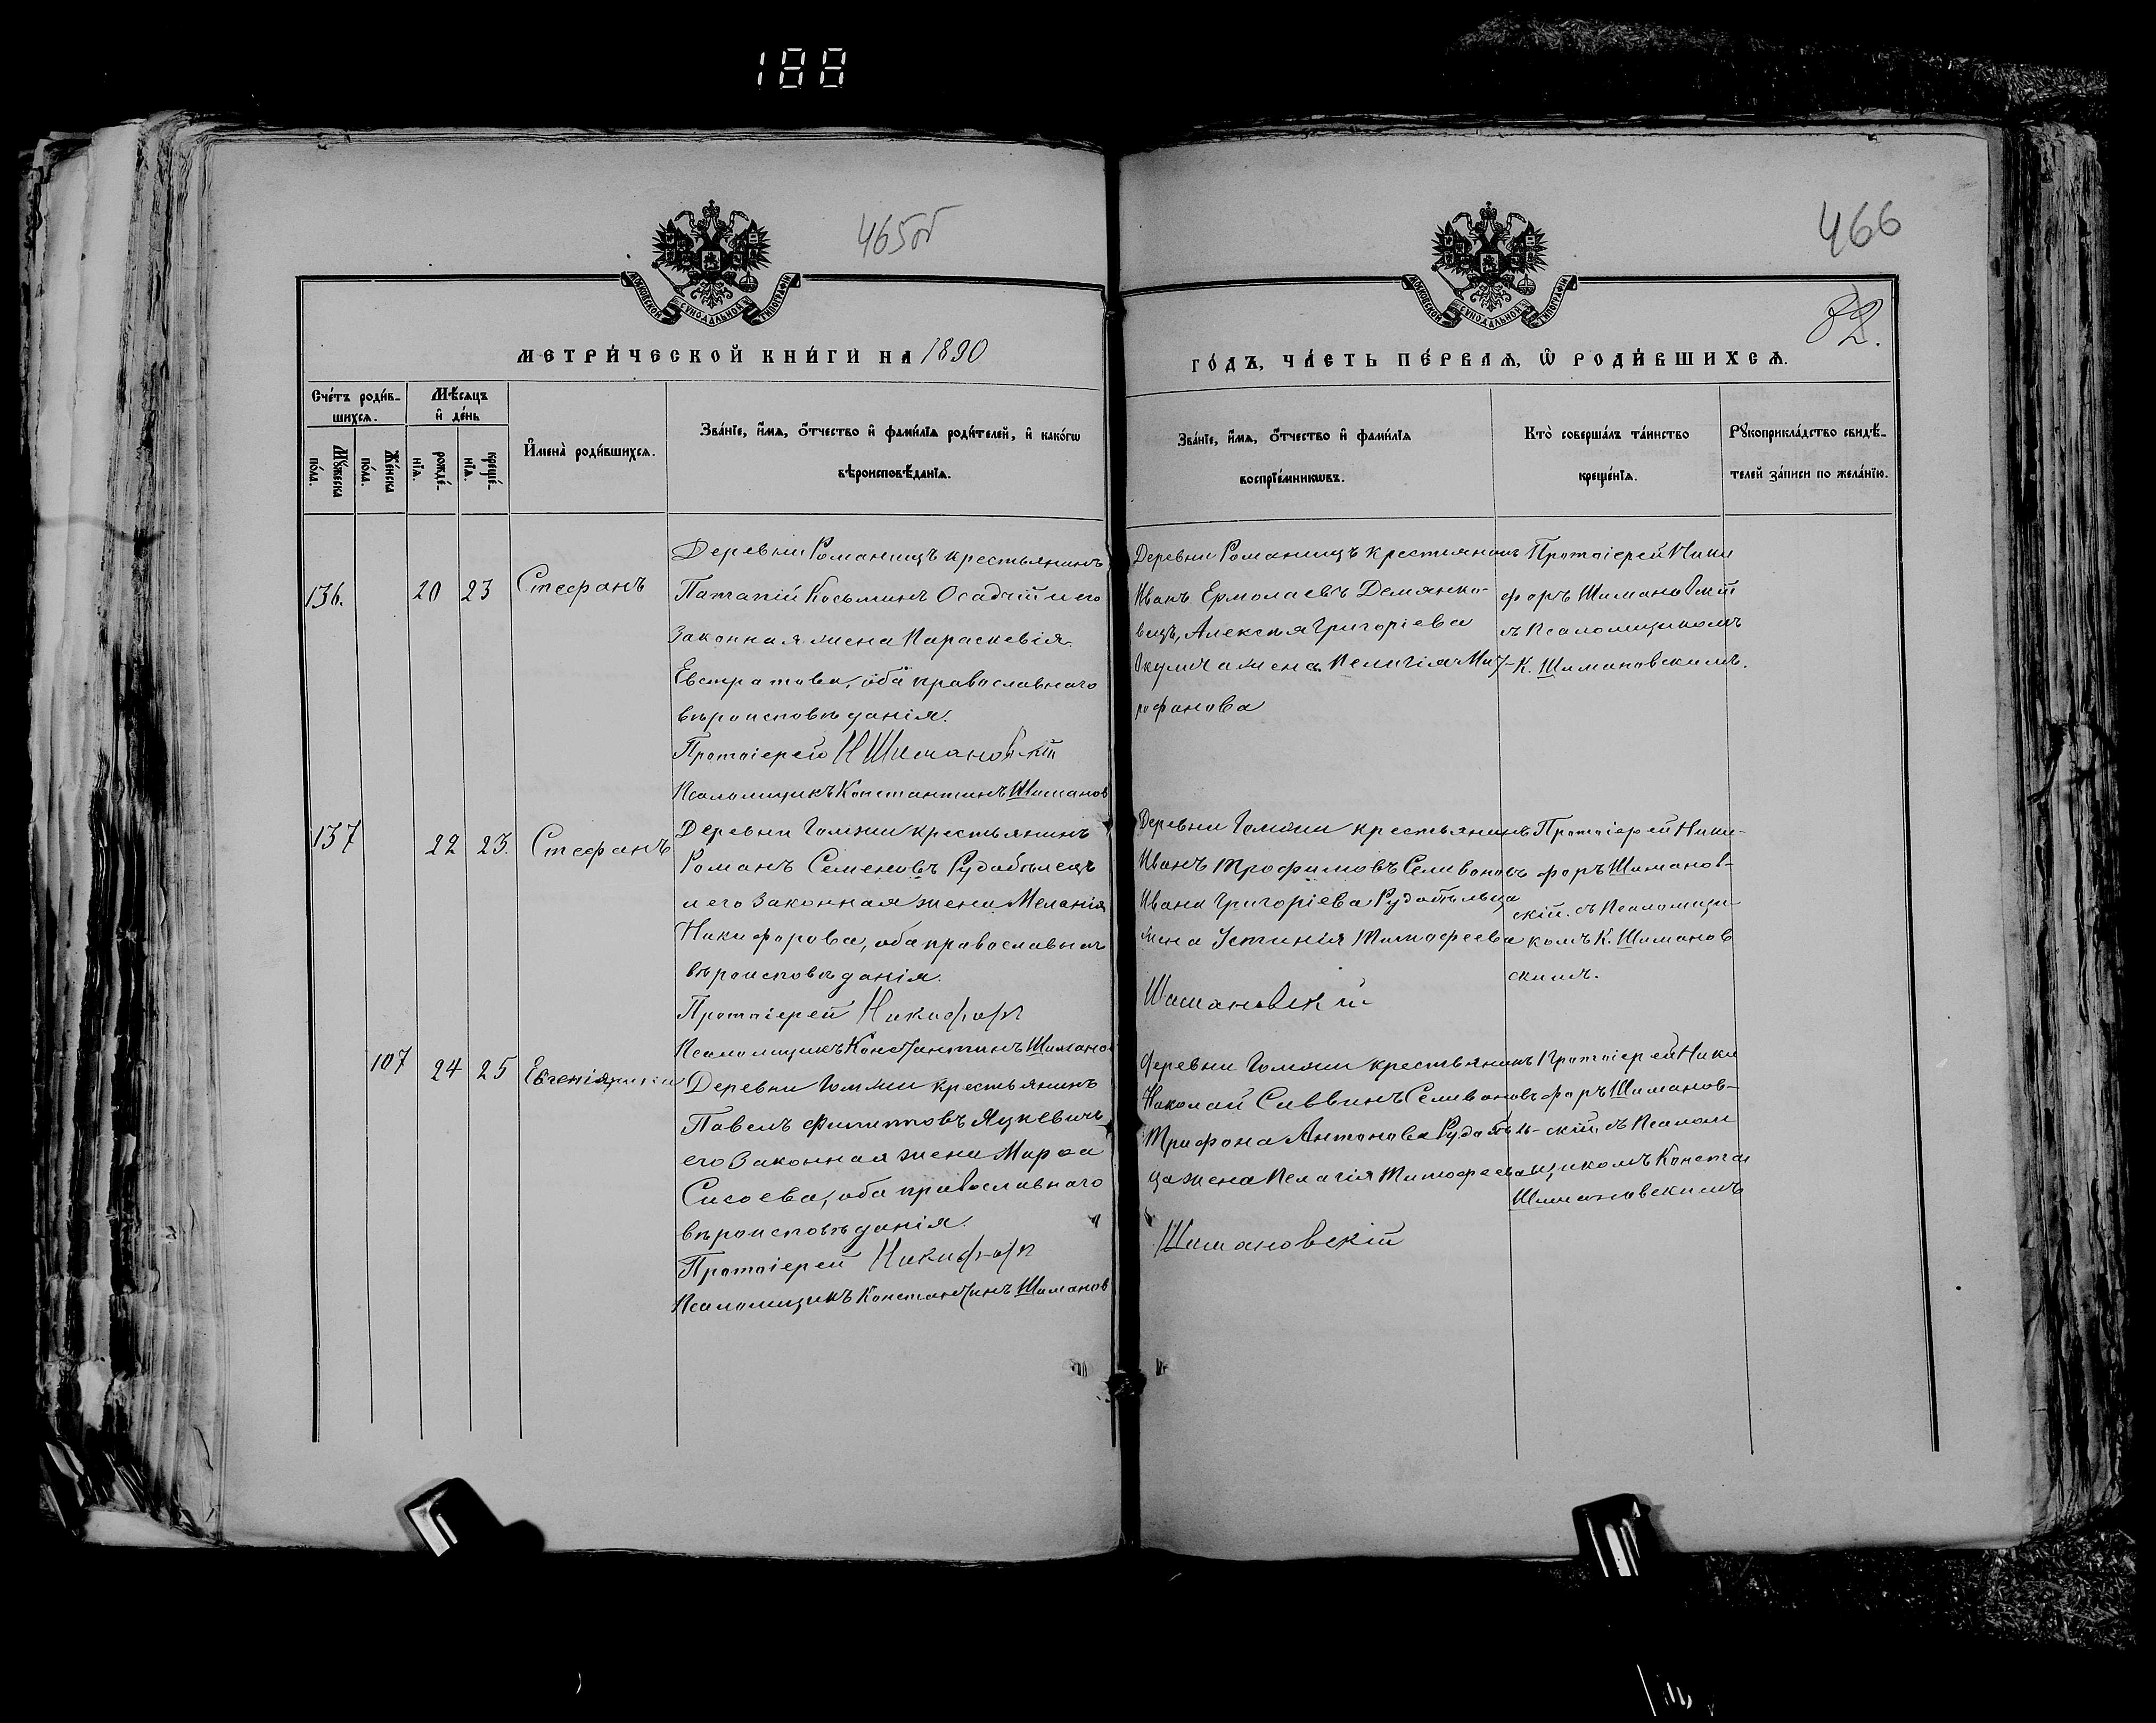 188
465об
466
82.
МОСКОВСКОЙ СУНОДАЛЬНОЙ ТИПОГРАФІИ
МОСКОВСКОЙ СУНОДАЛЬНОЙ ТИПОГРАФІИ
МЕТРИ́ЧЕСКОЙ КНИ́ГИ НА 1890
ГО́ДЪ, ЧА́СТЬ ПЕ́РВАѦ, Ѿ РОДИ́ВШИХСѦ.
Сче́тъ роди́в-
шихсѧ.
Мѣ́сѧцъ
и҆ де́нь
Мꙋ́жеска
по́ла.
Же́нска
по́ла.
рожде́-
нїѧ.
креще́-
нїѧ.
И҆мена̀ роди́вшихсѧ.
Зва́нїе, и҆́мѧ, ѻ҆́тчество и҆ фами́лїѧ роди́телей, и҆ како́гѡ
вѣроисповѣ́данїѧ.
Зва́нїе, и҆́мѧ, ѻ҆́тчество и҆ фами́лїѧ
воспрїе́мникѡвъ.
Кто̀ соверша́лъ та́инство
креще́нїѧ.
Рꙋкоприкла́дство свидѣ́-
телей за́писи по жела́нїю.
136.
20
23
Стефанъ
Деревни Романищъ крестьянинъ
Патапій Косьминъ Осадчій и его
законная жена Параскевія
Евстратова, оба православнаго
вѣроисповѣданія.
Протоіерей Н Шимановскій
Псаломщикъ Константинъ Шиманов
Деревни Романищъ крестьянинъ
Иванъ Ермолаевъ Демянко-
вецъ, Алексѣя Григоріева
жена Пелагія Мит-
рофанова
Протоіерей Ники
форъ Шимановскій
съ Псаломщикомъ
К. Шимановскимъ.
137
22
23.
Стефанъ
Деревни Гомзии крестьянинъ
Романъ Семеновъ Рудобѣлецъ
и его законная жена Меланія
Никифорова, оба православнаго
вѣроисповѣданія.
Протоіерей Никифоръ
Псаломщикъ Константинъ Шиманов
Деревни Гомзии крестьянинъ
Иванъ Трофимовъ Селивоновъ
Ивана Григоріева Рудобѣльца
жена Устинія Тимофеева
Шимановскій
Протоіерей Ники-
форъ Шиманов-
скій съ Псаломщи-
комъ К. Шиманов
скимъ.
107
24
25
Евгенія
Деревни Гомзии крестьянинъ
Павелъ Филиповъ Яцкевичъ
его законная жена Марѳа
Сисоева, оба православнаго
вѣроисповѣданія.
Протоіерей Никифоръ
Псаломщикъ Константинъ Шиманов
Деревни Гомзии крестьянинъ
Николай Саввинъ Селивоновъ
Трифона Антонова Рудобѣль-
ца жена Пелагія Тимофеева
Шимановскій
Протоіерей Ники
форъ Шиманов-
скій съ Псалом
щикомъ Констан
Шимановскимъ